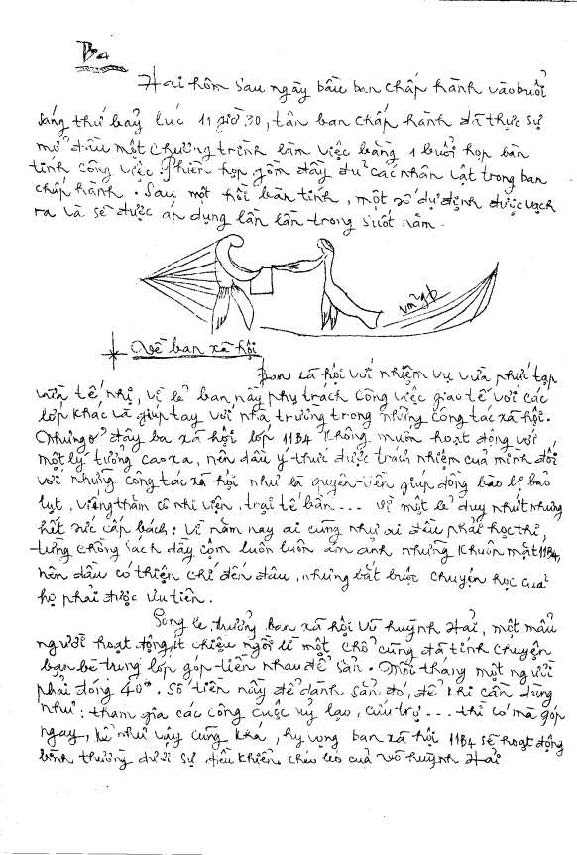 B4
Hai hôm sau ngày bầu ban chấp hành vào buổi
sáng thứ bảy lúc 11 giờ 30, tân ban chấp hành đã thực sự
mở đầu một chương trình làm việc bằng 1 buổi họp bàn
tính công việc. Phiên họp gồm đầy đủ các nhân vật trong ban
chấp hành. Sau một hồi bàn tính, một số dự định được vạch
ra và sẽ được áp dụng lần lần trong suốt năm.
Về ban xã hội
Ban xã hội với nhiệm vụ vừa phức tạp
vừa tế nhị, vì lẽ ban này phụ trách công việc giao tế với các
lớp khác và giúp tay với nhà trường trong những công tác xã hội.
Nhưng ở đây ba xã hội lớp 11B4 không muốn hoạt động với
một lý tưởng cao xa, nên dầu ý thức được trách nhiệm của mình đối
với những công tác xã hội như là quyên tiền giúp đồng bào bị bão
lụt, viếng thăm cô nhi viện, trại tế bần... vì một lẽ duy nhứt nhưng
hết sức cấp bách: Vì năm nay ai cũng như ai đều phải học thi,
từng chồng sách dầy cộm luôn luôn ám ảnh những khuôn mặt 11B4,
nên dầu có thiện chí đến đâu, nhưng bắt buộc chuyện học của
họ phải được ưu tiên.
Song le, trưởng ban xã hội Võ huỳnh Hải, một mẫu
người hoạt động, ít chịu ngồi lì một chỗ cũng đã tính chuyện
bạn bè trong lớp góp tiền nhau để sẵn. Mỗi tháng một người
phải đóng 40đ. Số tiền này để dành sẵn đó, để khi cần dùng
như: tham gia các công cuộc ủy lạo, cứu trợ... thì có mà góp
ngay, kể như vậy cũng khá, hy vọng ban xã hội 11B4 sẽ hoạt động
bình thường dưới sự điều khiển chèo léo của Võ huỳnh Hải